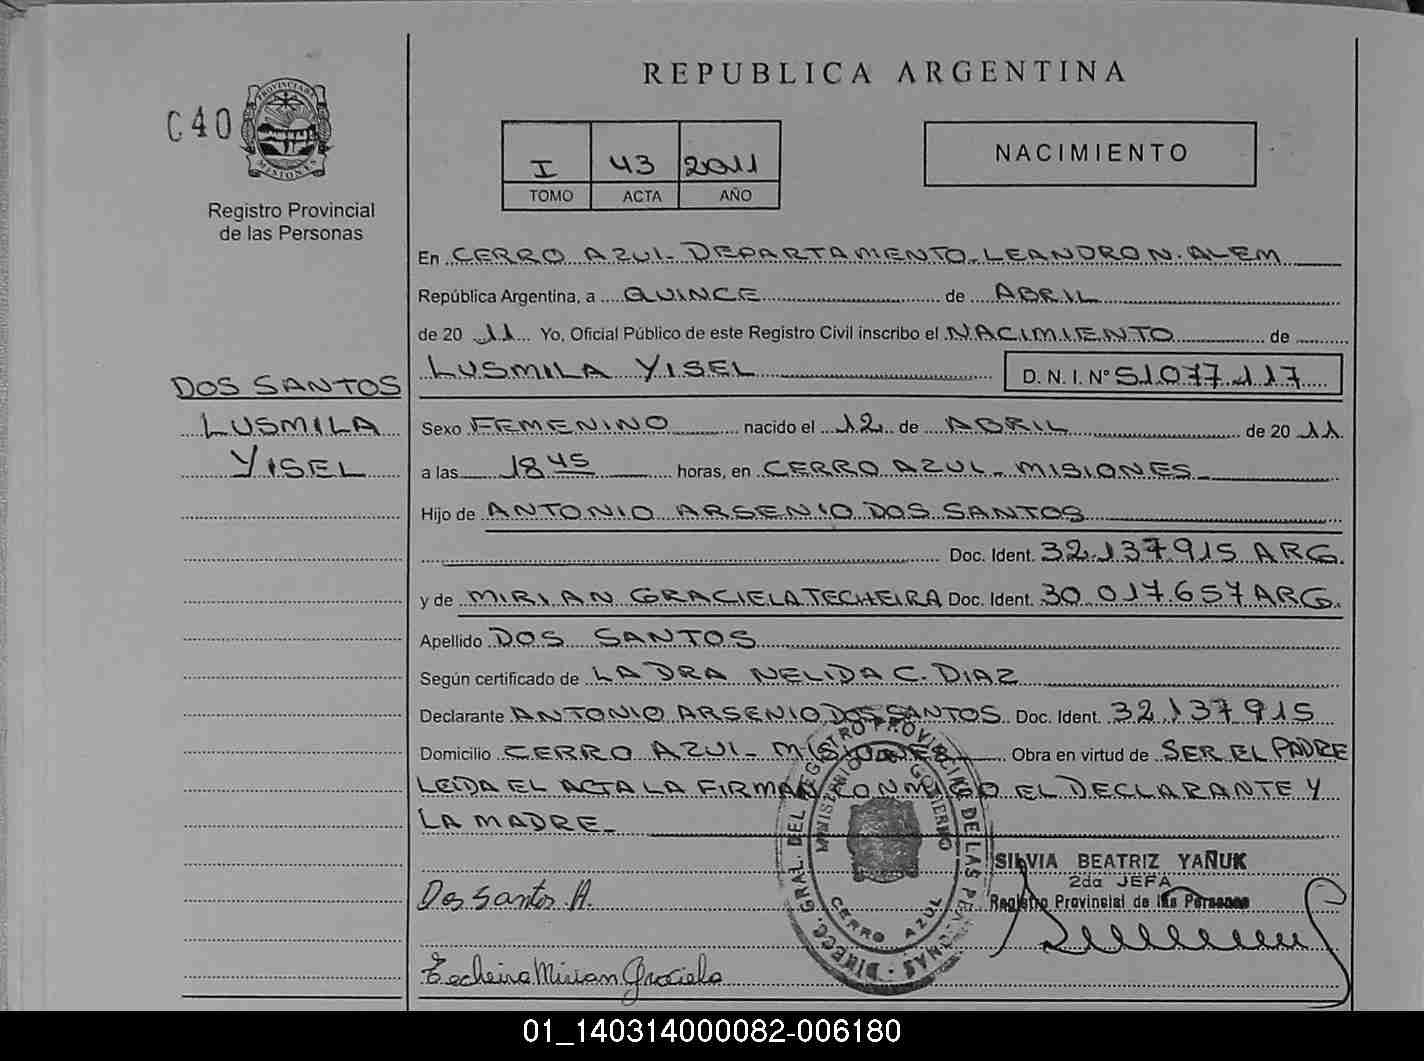 REPUBLICA ARGENTINA
C40
PROVINCIA DE MISIONES
Registro Provincial
de las Personas
I 43 2011
TOMO ACTA AÑO
NACIMIENTO
En CERRO AZUL - DEPARTAMENTO - LEANDRO N. ALEM
República Argentina, a QUINCE de ABRIL
de 20 11 Yo, Oficial Público de este Registro Civil inscribo el NACIMIENTO de
LUSMILA YISEL D. N. I. Nº 51.077.117
DOS SANTOS
LUSMILA
YISEL
Sexo FEMENINO nacido el 12 de ABRIL de 20 11
a las 18 45 horas, en CERRO AZUL - MISIONES
Hijo de ANTONIO ARSENIO DOS SANTOS
Doc. Ident. 32.137.915 ARG.
y de MIRIAN GRACIELA TECHEIRA Doc. Ident. 30.017.657 ARG.
Apellido DOS SANTOS
Según certificado de LA DRA NELIDA C. DIAZ
Declarante ANTONIO ARSENIO DOS SANTOS Doc. Ident. 32.137.915
Domicilio CERRO AZUL - MISIONES Obra en virtud de SER EL PADRE
LEIDA EL ACTA LA FIRMAN CONMIGO EL DECLARANTE Y
LA MADRE
DIRECC. GRAL. DEL REGISTRO PROVINCIAL DE LAS PERSONAS
MINISTERIO DE GOBIERNO
CERRO AZUL
SILVIA BEATRIZ YAÑUK
2da JEFA
Registro Provincial de las Personas
Dos Santos A.
Techeira Mirian Graciela
01_140314000082-006180